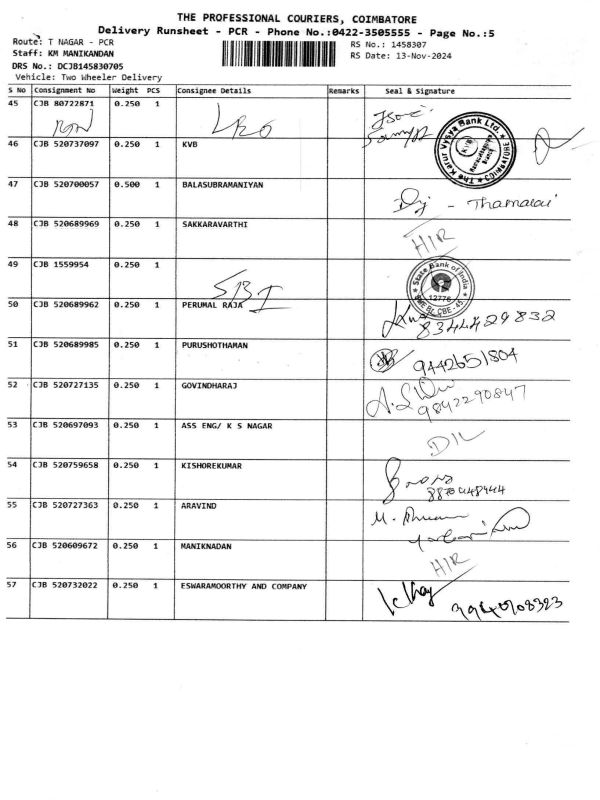 THE PROFESSIONAL COURIERS, COIMBATORE
Delivery Runsheet - PCR - Phone No.:0422-3505555 - Page No.:5
Route: T NAGAR - PCR
RS No.: 1458307
Staff: KM MANIKANDAN
RS Date: 13-Nov-2024
DRS No.: DCJB145830705
Vehicle: Two Wheeler Delivery
S No Consignment No Weight PCS Consignee Details Remarks Seal & Signature
45 CJB 80722871 0.250 1
46 CJB 520737097 0.250 1 KVB
The Karur Vysya Bank Ltd. COIMBATORE
47 CJB 520700057 0.500 1 BALASUBRAMANIYAN
- Thamalai
48 CJB 520689969 0.250 1 SAKKARAVARTHI
H/R
49 CJB 1559954 0.250 1 SBI
State Bank of India
12776
SME BL, CBE - 45
50 CJB 520689962 0.250 1 PERUMAL RAJA
8344429832
51 CJB 520689985 0.250 1 PURUSHOTHAMAN
9442651804
52 CJB 520727135 0.250 1 GOVINDHARAJ
9842290847
53 CJB 520697093 0.250 1 ASS ENG/ K S NAGAR
D/L
54 CJB 520759658 0.250 1 KISHOREKUMAR
55 CJB 520727363 0.250 1 ARAVIND
56 CJB 520609672 0.250 1 MANIKNADAN
H/R
57 CJB 520732022 0.250 1 ESWARAMOORTHY AND COMPANY